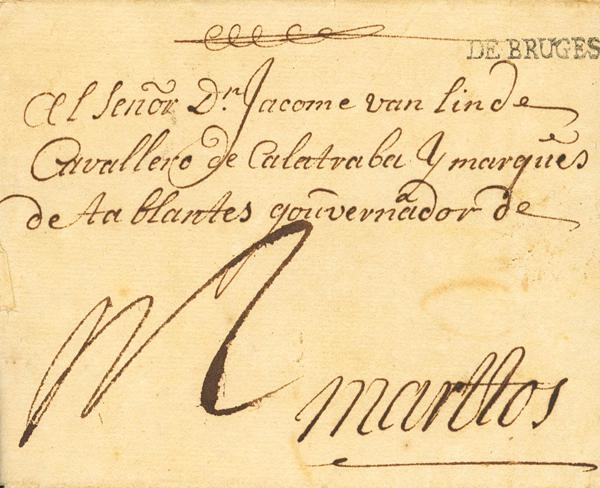 DE BRUGES
Al Señor Dn Jacome van linde
Cavallero de Calatraba y marques
de tablantes gouvernador de
marttos